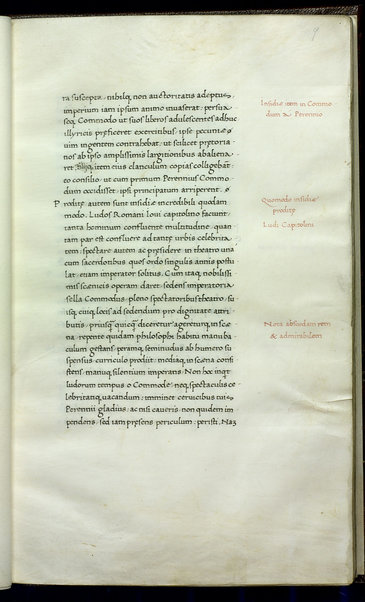 9
ra suscepta, nihilq; non auctoritatis adeptus,
imperium iam ipsum animo inuaserat, persua
seq; Commodo ut suos liberos adulescentes adhuc
illyricis preficeret exercitibus, ipse pecuniã
uim ingentem contrahebat, ut scilicet pretoria
nos ab ipso amplissimis largitionibus abaliena
ret. filiiq; item eius clanculum copias colligebãt
eo consilio, ut cum primum Perennius Commo
dum occidisset, ipsi principatum arriperent.
Proditę autem sunt insidię incredibili quodam
modo. Ludos Romani Ioui capitolino faciunt
tanta hominum confluente multitudine, quan
tam par est confluere ad tantę urbis celebrita
tem, spectare autem ac presidere in theatro una
cum sacerdotibus, quos ordo singulis annis postu
lat, etiam imperator solitus. Cum itaq; nobilissi
mis scenicis operam daret, sedens imperatoria
sella Commodus, pleno spectatoribus theatro, su
isq; cuiq; locis ad sedendum pro dignitate attri
butis, priusq; quicq; diceretur, agereturq; in sce
na, repente quidam philosophi habitu manu ba
culum gestans, peramq; seminudus ab humero su
spensus, curriculo prodiit, mediaq; in scena consi
stens, manuq; silentium imperans, Non hec inqt
ludorum tempus o Commode, neq; spectaculis ce
lebritatiq; uacandum, imminet ceruicibus tuis
Perennii gladius, ac nisi caueris non quidem im
pendens, sed iam presens periculum, peristi. Nã
Insidię item in Commo
dum a Perennio
Quomodo insidię
proditę
Ludi Capitolini
Nota absurdam rem
& admirabilem